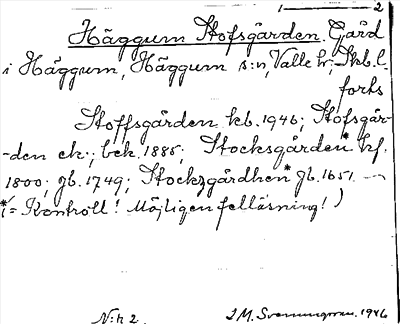 2
Häggum Stofsgården. Gård
i Häggum, Häggum s:n, Valle hr; Skb. l.
forts
Stoffsgården kb. 1946; Stofsgår-
-den ek.; bek. 1885; Stocksgården* kf.
1800; jb. 1749; Stockzgårdhen* jb. 1651.
*(= Kontroll! Möjligen felläsning!)
N:r 2. J.M. 1946